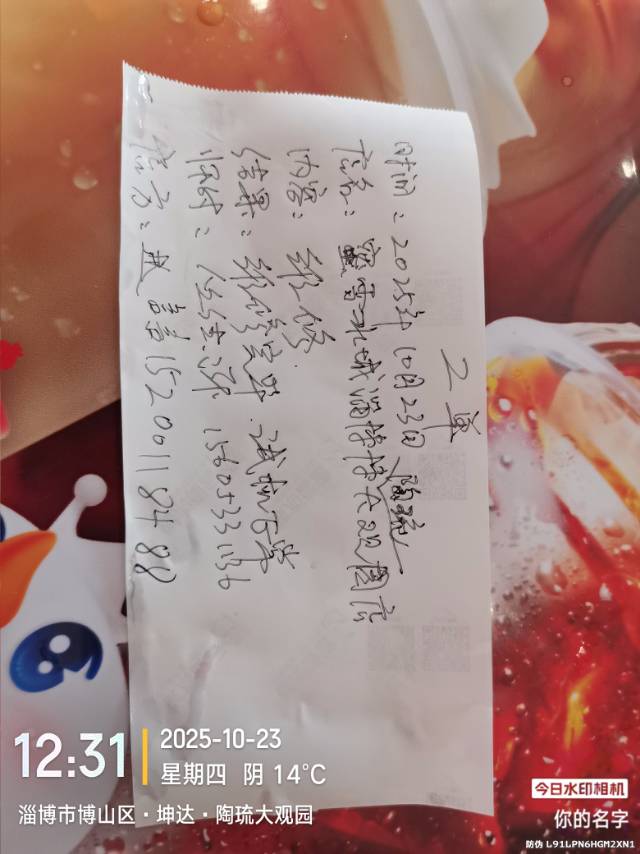 工单
时间：2025年10月23日
店名：蜜雪冰城淄博博大观园店
陶琉
内容：维修.
结果：维修完毕.试机正常
师付：丛 15605331136
店方：赵 15200118488
12:31
2025-10-23
星期四 阴 14°C
淄博市博山区·坤达·陶琉大观园
今日水印相机
你的名字
防伪 L91LPN6HGM2XN1